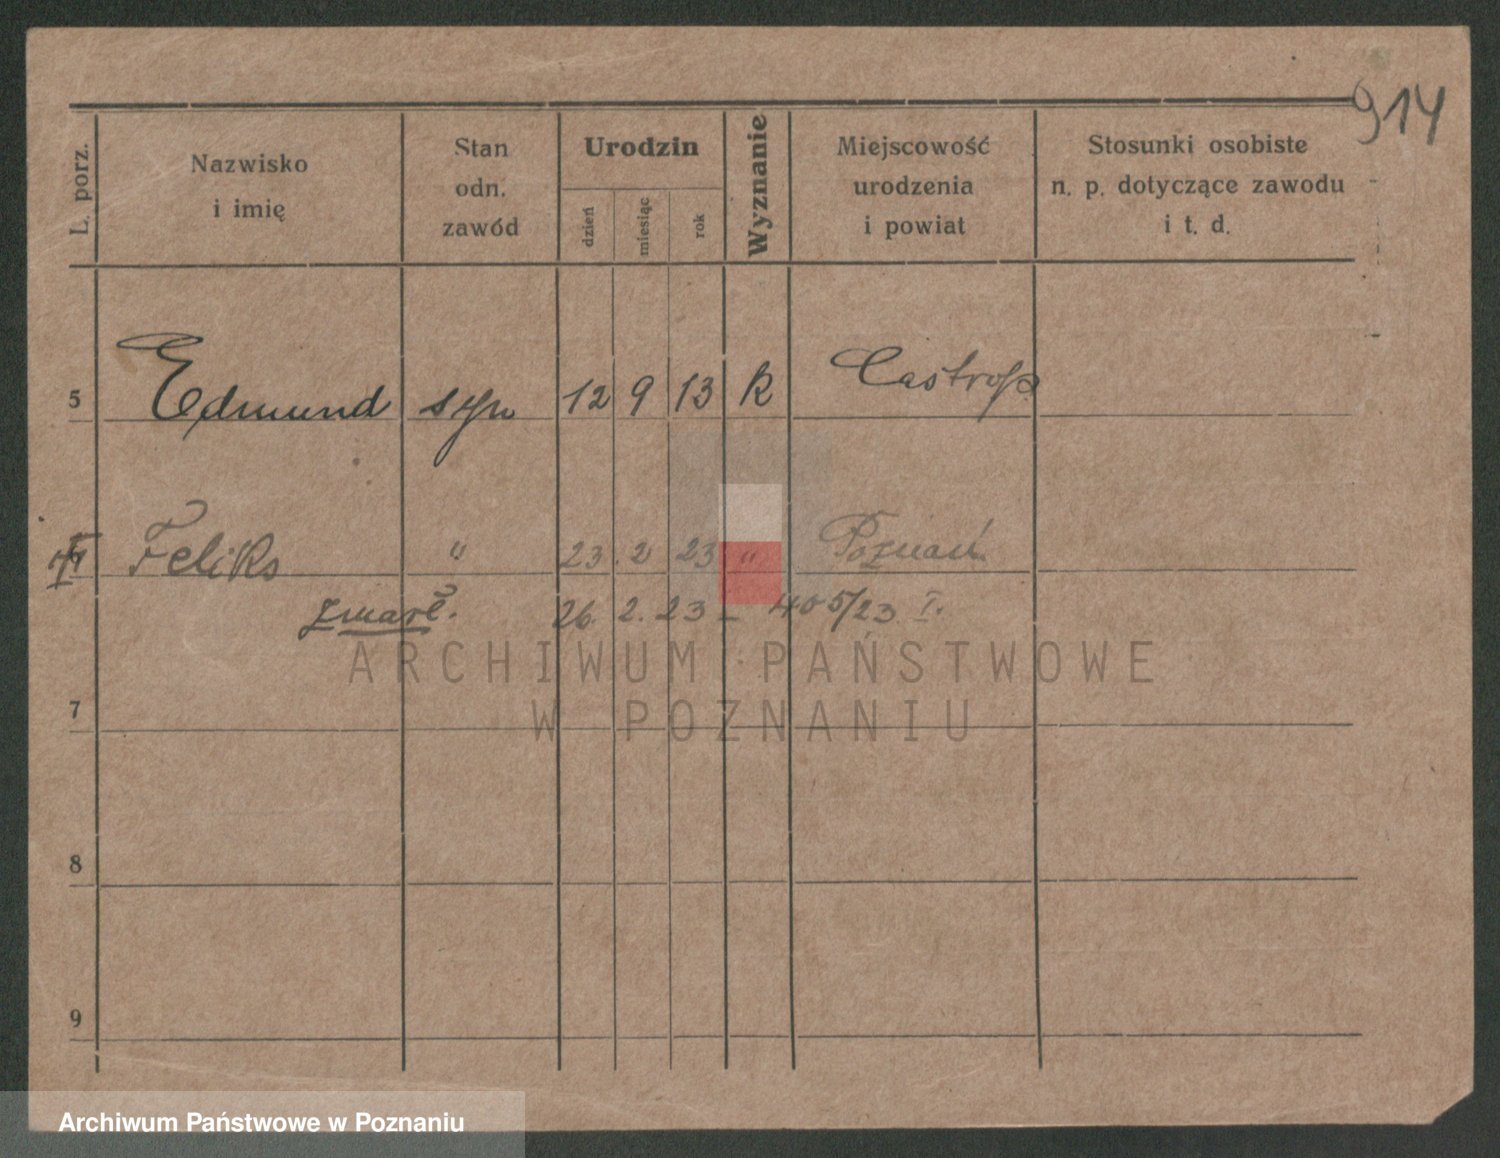 914
L. porz. Nazwisko i imię Stan odn. zawód Urodzin dzień miesiąc rok Wyznanie Miejscowość urodzenia i powiat Stosunki osobiste n. p. dotyczące zawodu i t. d.
5 Edmund syn 12 9 13 k Castrop
Feliks " 23 2 23 " Poznań
zmarł. 26. 2. 23 405/23 I.
ARCHIWUM PAŃSTWOWE
W POZNANIU
7
8
9
Archiwum Państwowe w Poznaniu